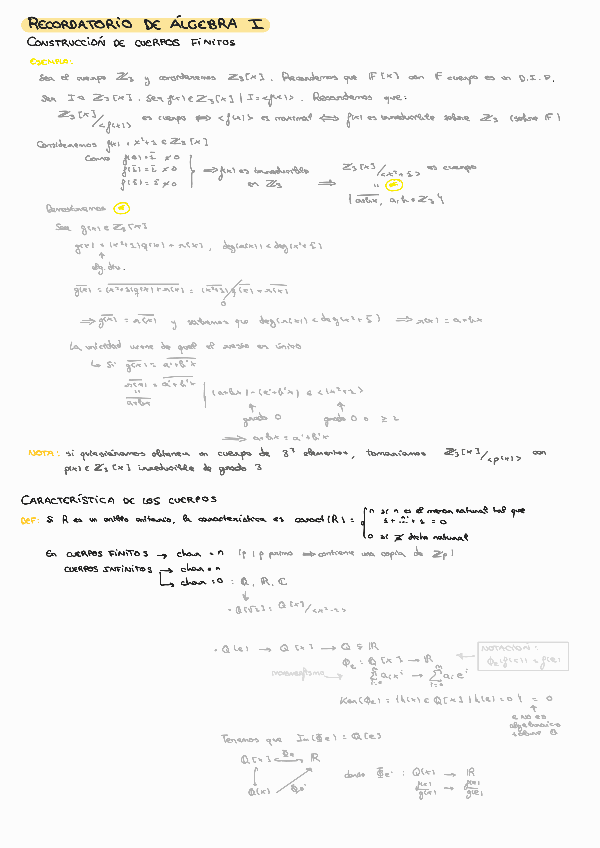 RECORDATORIO DE ÁLGEBRA I
CONSTRUCCIÓN DE CUERPOS FINITOS
EJEMPLO:
Sea el cuerpo ℤ₃ y consideremos ℤ₃[x]. Recordemos que F[x] con F cuerpo es un D.I.P.
Sea I ⊲ ℤ₃[x]. Sea f(x) ∈ ℤ₃[x] | I = <f(x)>. Recordemos que:
ℤ₃[x]/<f(x)> es cuerpo ⟺ <f(x)> es maximal ⟺ f(x) es irreducible sobre ℤ₃ (sobre F)
Consideremos f(x) = x²+1 ∈ ℤ₃[x]
Como f(0) = 1 ≠ 0
f(1) = 2 ≠ 0
f(2) = 2 ≠ 0
⟹ f(x) es irreducible en ℤ₃ ⟹ ℤ₃[x]/<x²+1> es cuerpo
"
{a+bx, a,b ∈ ℤ₃}
Demostramos
Sea g(x) ∈ ℤ₃[x]
g(x) = (x²+1)q(x) + r(x), deg(r(x)) < deg(x²+1)
↑
alg. div.
g(x) = (x²+1)q(x)+r(x) = (x²+1)q(x) + r(x)
0
⟹ g(x) = r(x) y sabemos que deg(r(x)) < deg(x²+1) ⟹ r(x) = a+bx
La unicidad viene de que el resto es único
↳ Si g(x) = a'+b'x
r(x) = a'+b'x
"
a+bx
(a+bx) - (a'+b'x) ∈ <x²+1>
grado 0 grado 0 o ≥ 2
⟹ a+bx = a'+b'x
NOTA: si quisiéramos obtener un cuerpo de 3³ elementos, tomaríamos ℤ₃[x]/<p(x)> con
p(x) ∈ ℤ₃[x] irreducible de grado 3
CARACTERÍSTICA DE LOS CUERPOS
DEF: Si R es un anillo unitario, la característica es caract(R) = { n si n es el menor natural tal que
1+...+1 = 0
0 si ∄ dicho natural
En CUERPOS FINITOS → char = n (p | p primo ⟹ contiene una copia de ℤp)
CUERPOS INFINITOS → char = n
↳ char = 0 : ℚ, ℝ, ℂ
↓
· ℚ[√2] = ℚ[x]/<x²-2>
· ℚ(e) → ℚ[x] → ℚ ⊆ ℝ
Φe : ℚ[x] → ℝ
NOTACIÓN:
Φe(f(x)) = f(e)
Ker(Φe) = {h(x) ∈ ℚ[x] | h(e) = 0} = 0
↑
e no es
algebraico
sobre ℚ
Tenemos que Im(Φe) = ℚ[e]
ℚ[x] Φe ℝ
ℚ(x) Φe'
donde Φe' : ℚ(x) → ℝ
f(x)/g(x) → f(e)/g(e)